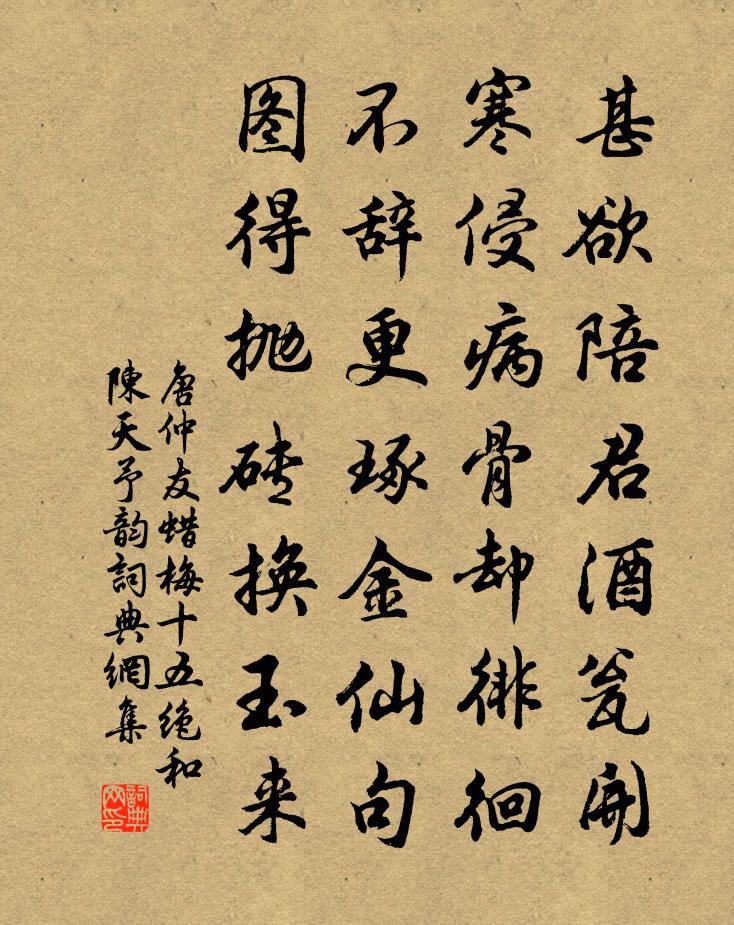 甚欲陪君酒瓮開
寒侵病骨却徘徊
不辞更琢金仙句
图得抛砖換玉来
唐仲友蜡梅十五绝和
陳天予韵詞典網集
詞典
网印